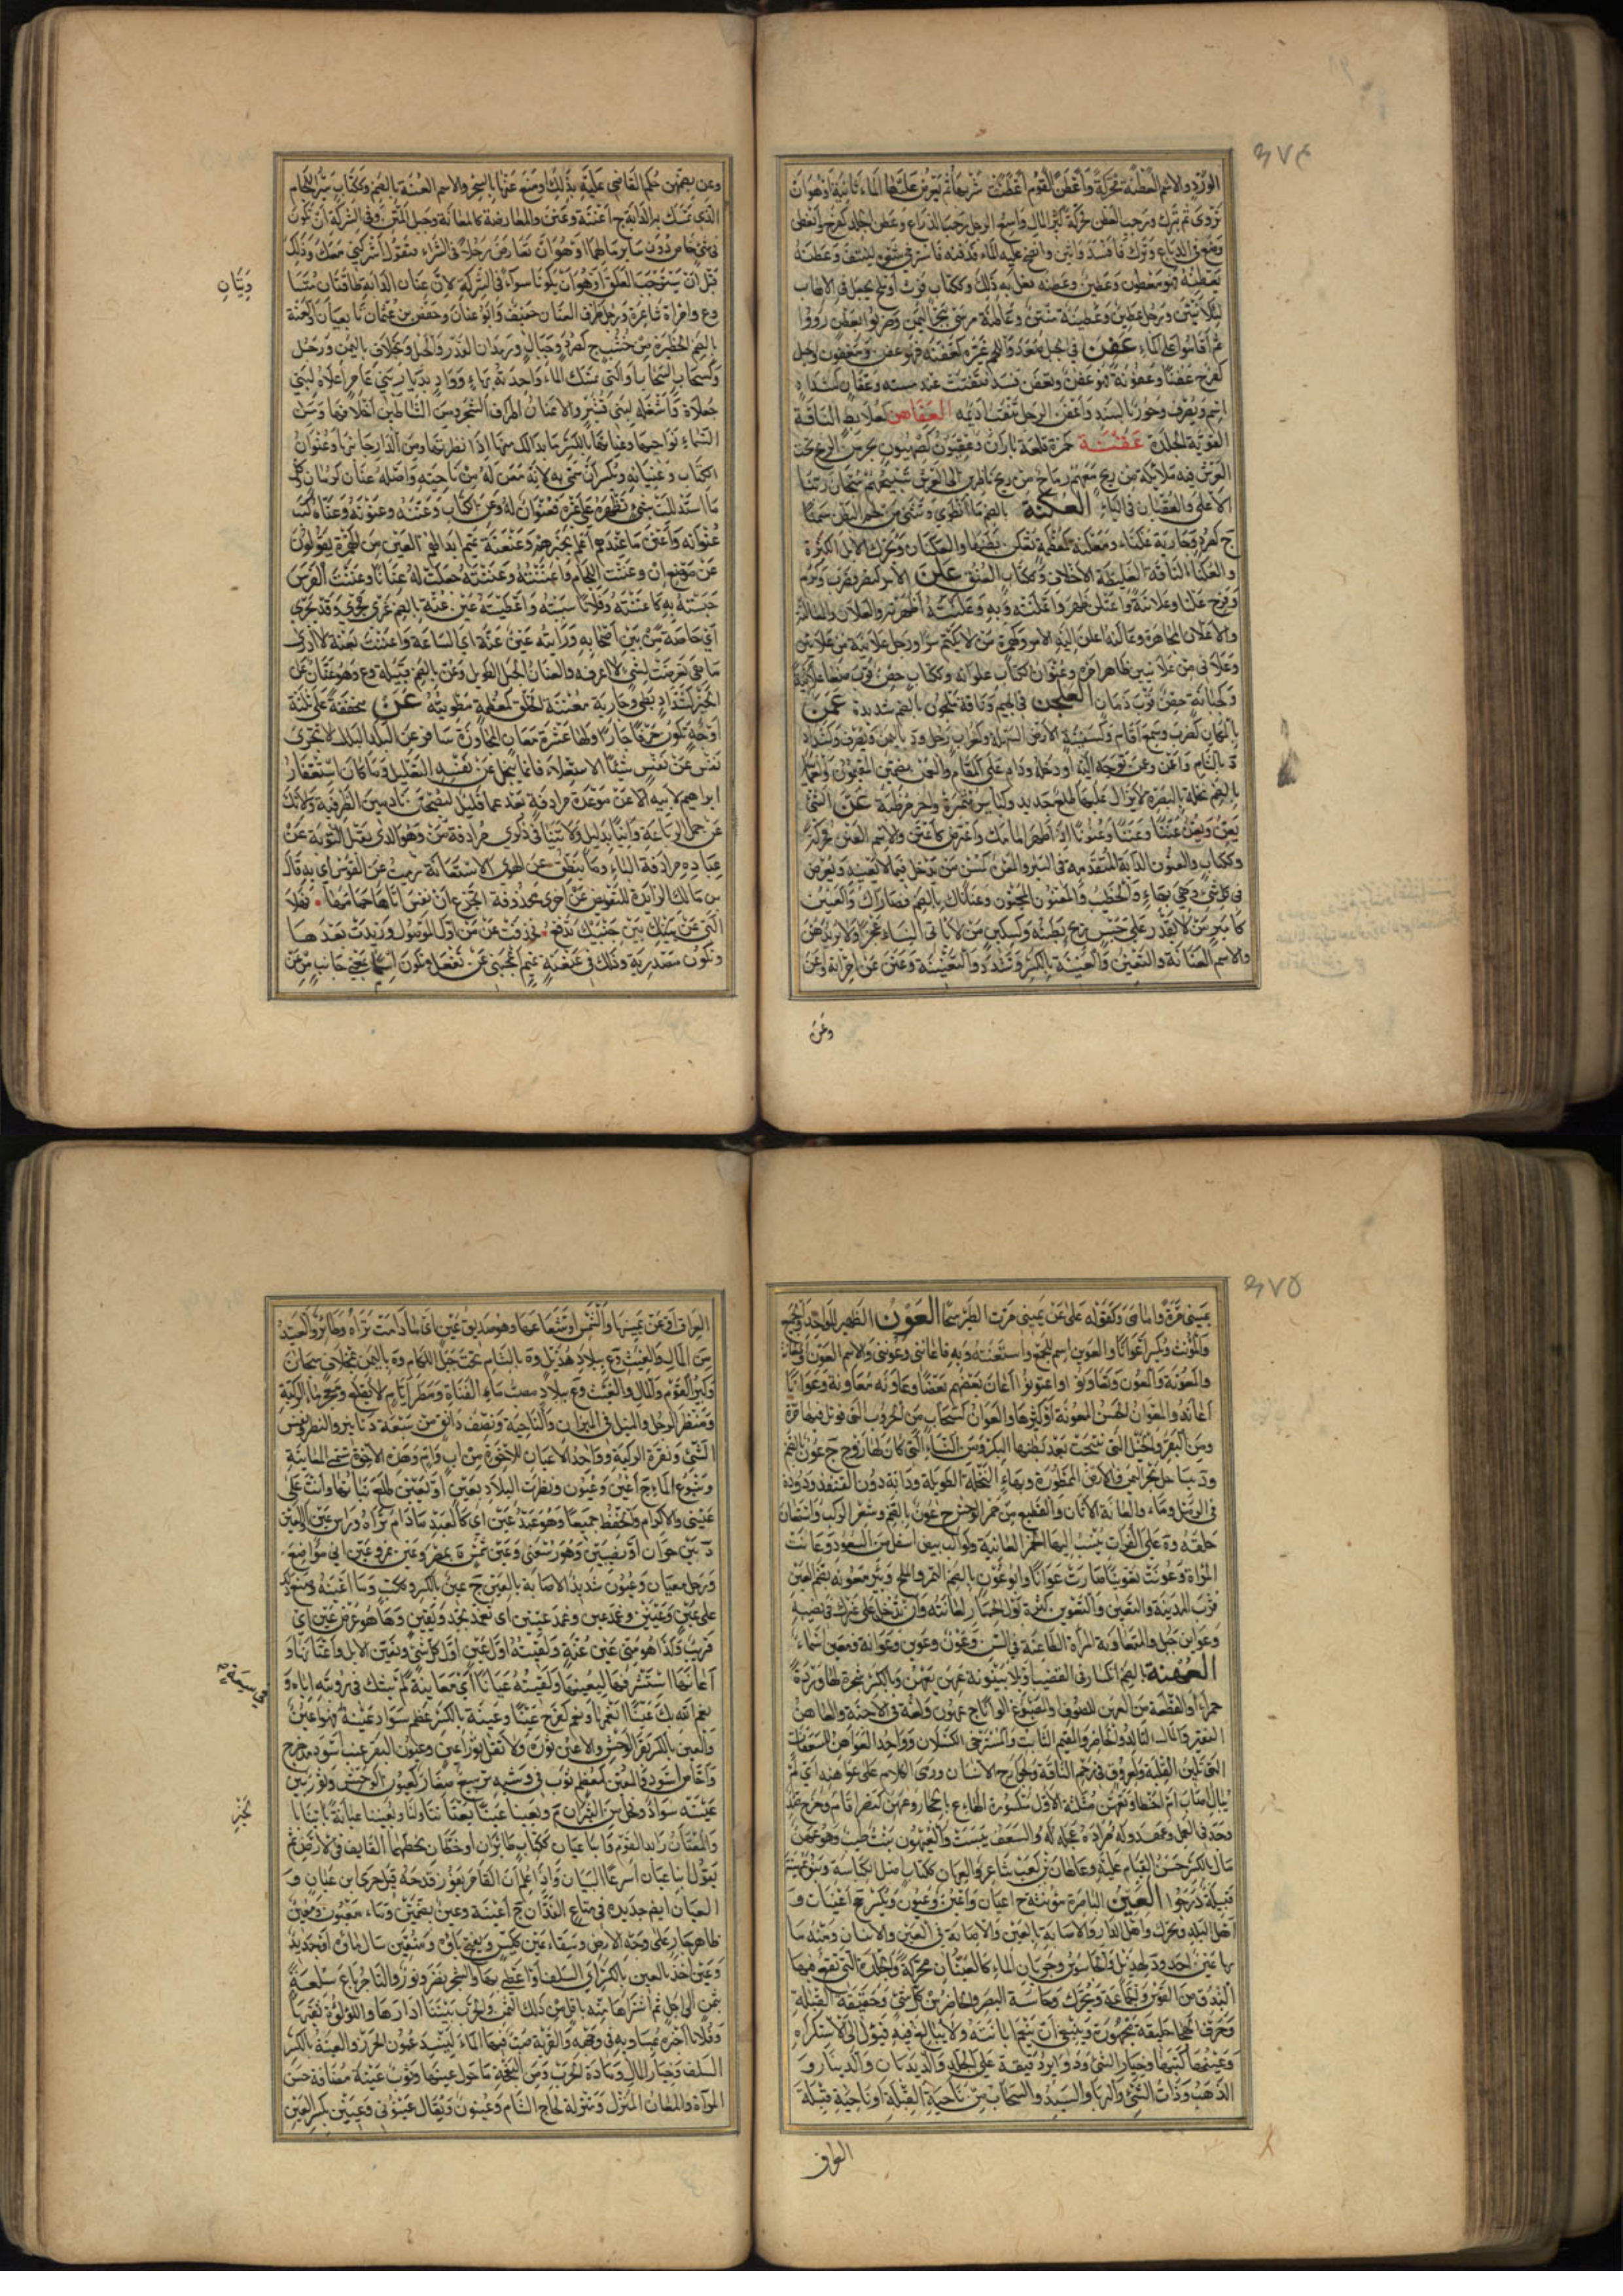 ٣٧٤
الورد والاسم العطنة محركة وأعطن القوم أعطنت
تروى ثم تبرك ورحب العطن محركة كثير المال واسع الرحل رحب الذراع وعطن الجلد كفرح وانعطن
وضع في الدباغ وترك فأفسد وأنتن
يعطنه فهو معطون وعطين وعطنه فعل به ذلك وككتاب فرث أو ملح يجعل في الاهاب
لئلا ينتن ورجل عطين
ثم أقاموا على الماء عفن في الجبل صعد واللحم غيره كعفنه فهو عفن ومعفون
كفرح عفنا وعفونة فهو عفن وتعفن فسد فتفتت عند مسه وعفان كشداد
اسم ويصرف العفاهن كعلابط الناقة
القوية الجلدة عقنة
العرش فيه ملائكة من ريح معهم رماح من ريح ناظرين الى العرش تسبيحهم سبحان ربنا
الأعلى والعقيان في الياء العكنة بالضم ما انطوى وتثنى من لحم البطن سمنا
ج كصرد وجارية عكناء ومعكنة كمعظمة تعكن بطنها والعكنان ويحرك الابل الكثيرة
والعكناء الناقة الغليظة الأخلاف وككتاب العنق علن الأمر كنصر وضرب وكرم
وفرح علنا وعلانية واعتلن ظهر وأعلنته وبه وعلنته أظهرته والعلان والمعالنة
والاعلان المجاهرة وعالنه أعلن اليه الأمر وكهمزة من لا يكتم سرا ورجل علانية من علانين
وعلاني من علانيين ظاهر أمره وعلوان الكتاب علوانه وككتاب حصن قرب صنعاء
وكجبانة حصن قرب ذمار العلجن في الجيم وناقة علجون بالضم شديدة عمن
بالمكان كضرب وسمع أقام وكسفينة الأرض السهلة وكغراب رجل ود باليمن ويصرف وكشداد
د بالشام وأعمن وعمن توجه اليه أو دخله ودام على المقام والعمن بضمتين المقيمون
بالضم نخلة بالبصرة لا يزال عليها طلع جديد وكباس مثمرة وآخر مرطبة عن الشئ
يعن ويعن عنا وعننا وعنونا اذا ظهر أمامك واعترض كاعتن والاسم العنن محركة
وككتاب والعنون الدابة المتقدمة في السير والمعن كمسن من يدخل فيما لا يعنيه ويعرض
في كل شئ وهي بهاء والخطيب والمعنون المجنون وعناك بالضم قصاراك والعنين
كأمير من لا يقدر على حبس ريح بطنه وكسكين من لا يأتي النساء عجزا ولا يريدهن
والاسم العنانة والتعنين والعنينة بالكسر وتشدد والتعنينة وعنن عن امرأته وأعن
وعن
وعن بضمهن حكم القاضي عليه بذلك أو منع عنها بالسحر والاسم العنة بالضم وككتاب سير اللجام
الذي تمسك به الدابة ج أعنة وعنن والمعارضة كالمعانة وحبل المتن وفي الشركة أن تكون
في شئ خاص دون سائر مالهما أو هو أن تعارض رجلا في الشراء فتقول أشركني معك وذلك
قبل أن يستوجب العلق أو هو أن يكونا سواء في الشركة لأن عنان الدابة طاقتان متساويتان
وع وامرأة شاعرة ورجل طرف العنان خفيف وأبو عنان وحفص بن عنان تابعيان والعنة
بالضم الحظيرة من خشب ج كصرد وجبال ودقدان القدر والحبل ومخلاف باليمن ورجل
وكسحاب السحاب أو التي تمسك الماء واحدته بهاء وواد بديار بني عامر أعلاه لبني
جعدة وأسفله لبني قشير والأعنان أطراف الشجر ومن الشياطين أخلاقها ومن
السماء نواحيها وعنانها بالكسر ما بدا لك منها اذا نظرتها ومن الدار جانبها وعنوان
الكتاب وعنيانه ويكسران سمي به لأنه يعن له من ناحيته وأصله عنان كرمان وكل
ما استدللت بشئ تظهره على غيره فعنوان له وعن الكتاب وعننه وعنونه وعناه كتب
عنوانه وأعتن ما عندهم أعلم بخبرهم وعنعنة تميم ابدالهم العين من الهمزة يقولون
عن موضع أن وعننت اللجام وأعننته وعننته جعلت له عنانا وعننت الفرس
حبسته به كأعننته وفلانا سببته وأعطيته عين عنة بالضم غير مجرى وقد يجرى
أي خاصة من بين أصحابه ورأيته عين عنة أي الساعة وأعننت بعنة لا أدري
ما هي تعرضت لشئ لا أعرفه والعنان الحبل الطويل وعن بالضم قبيلة وع وهو عنان عن
الخير كشداد بطئ وجارية معننة الخلق كمعظمة مطويته عن مخففة على ثلاثة
أوجه تكون حرفا جارا ولها عشرة معان المجاوزة سافر عن البلد البدل لا تجزي
نفس عن نفس شيئا الاستعلاء فانما يبخل عن نفسه التعليل وما كان استغفار
ابراهيم لأبيه الا عن موعدة مرادفة بعد عما قليل ليصبحن نادمين الظرفية ولا تك
عن حمل الرباعة وانيا بدليل ولا تنيا في ذكري مرادفة من وهو الذي يقبل التوبة عن
عباده مرادفة الباء وما ينطق عن الهوى الاستعانة رميت عن القوس أي به قاله
بن مالك الزائدة للتعويض عن أخرى محذوفة أتجزع ان نفس أتاها حمامها فهلا
التي عن بين جنبيك تدفع فحذفت عن من أول الموصول وزيدت بعدها
وتكون مصدرية وذلك في عنعنة تميم أعجبني عن تفعل وتكون اسما بمعنى جانب من عن
٣٧٥
يميني مرة وأمامي وكقوله على عن يميني مرت الطير سنحا العون الظهير للواحد والجمع
والمؤنث ويكسر أعوانا والعوين اسم للجمع واستعنته وبه فأعانني وعونني والاسم العون
والمعونة والمعون وتعاونوا واعتونوا أعان بعضهم بعضا وعاونه معاونة وعوانا
أعانه والمعوان الحسن المعونة أو كثيرها والعوان كسحاب من الحروب التي قوتل فيها مرة
ومن البقر والخيل التي نتجت بعد بطنها البكر ومن النساء التي كان لها زوج ج عون بالضم
ود بساحل بحر اليمن والأرض الممطورة وبهاء النخلة الطويلة ودابة دون القنفذ ودودة
في الرمل وماء والعانة الأتان والقطيع من حمر الوحش ج عون بالضم وشعر الركب واستعان
حلقه وة على الفرات ينسب اليها الخمر العانية وكواكب بيض أسفل من السعود وعانت
المرأة وعونت تعوينا صارت عوانا وأبو عون بالضم التمر والملح وبئر معونة بضم العين
قرب المدينة والتعوين كثرة بول الحمار لعانته وأن تدخل على غيرك في نصيبه
وعواين جبل والمتعاونة المرأة الطاعنة في السن وعون وعوين وعوانة ومعين أسماء
العهنة بالضم انكسار في القضيب ولا بينونة عهن يعهن وبالكسر شجرة لها وردة
حمراء أو القطعة من العهن للصوف أو المصبوغ ألوانا ج عهون ولغة في الاحنة والعاهن
الفقير والمال التالد والحاضر والمقيم الثابت والمسترخي الكسلان وواحد العواهن للسعفات
التي تلين القلبة ولعروق في رحم الناقة ولجوارح الانسان ورمى الكلام على عواهنه أي لم
يبال أصاب أم أخطأ
وجد في العمل وعهد وله مراده عجله له والسعف يبست والعيهون نبت طيب وهو عهن
مال بالكسر حسن القيام عليه وعاهان بن كعب شاعر والعهان ككتاب أصل الكباسة وبنو عهينة
قبيلة درجوا العين الباصرة مؤنثة ج أعيان وأعين وعيون ويكسر ج أعينات و
أهل البلد ويحرك وأهل الدار والاصابة بالعين والاصابة في العين والانسان ومنه ما
بها عين أي أحد ود لهذيل والجاسوس وجريان الماء كالعينان محركة والجلدة التي تقع فيها
البندق من القوس والجماعة ويحرك وحاسة البصر والحاضر من كل شئ وحقيقة القبلة
وحرف هجاء حلقية مجهورة وينبغي أن تنعم ابانته ولا يبالغ فيه فيؤول الى الاستكراه
وعينتها كتبتها وخيار الشئ ودوائر رقيقة على الجلد والديدبان والدينار و
الذهب وذات الشئ والربا والسيد والسحاب من ناحية القبلة أو ناحية قبلة
العراق
العراق أو عن يمينها والشمس أو شعاعها وهو صديق عين أي ما دامت تراه وطائر والعتيد
من المال والعيب وع ببلاد هذيل وة بالشام تحت جبل اللكام وة باليمن بمخلاف سنحان
وكبير القوم والمال ومصب ماء القناة ومطر أيام لا يقلع ومفجر ماء الركية
ومنظر الرجل والميل في الميزان والناحية ونصف دانق من سبعة دنانير والنظر ونفس
الشئ ونقرة الركبة وواحد الأعيان للاخوة من أب وأم وهذه الأخوة تسمى المعاينة
وينبوع الماء ج أعين وعيون ونظرت البلاد بعين أو بعينين طلع نباتها وأنت على
عيني في الاكرام والحفظ جميعا وهو عبد عين أي كالعبد ما دام تراه ورأس عين أو العين
د بين حران ونصيبين وهو رسعني وعين شمس ة بمصر وعين
ورجل معيان وعيون شديد الاصابة بالعين ج عين بالكسر وككتب وما أعينه وصنع ذلك
على عين وعينين وعمد عين وعمد عينين أي تعمده بجد ويقين وها هو عرض عين أي
قريب وكذا هو مني عين عنة ولقيته أول عين أول كل شئ وتعين الابل واعتانها و
أعانها استشرفها ليعينها ولقيته عيانا أي معاينة لم يشك في رؤيته اياه و
نعم الله بك عينا أنعمها وعين كفرح عينا وعينة بالكسر عظم سواد عينه فهو أعين
والعين بالكسر بقر الوحش والأعين ثوره ولا تقل ثور أعين وعيون البقر عنب أسود مدحرج
واجاص أسود والمعين كمعظم ثوب في وشيه ترابيع صغار كعيون الوحش وثور بين
عينيه سواد وفحل من الثيران م
والمعتان رائد القوم وابنا عيان ككتاب طائران أو خطان يخطهما القائف في الأرض ثم
يقول ابنا عيان أسرعا البيان واذا علم أن القامر يفوز قدحه قيل جرى ابنا عيان و
العيان أيضا حديدة في متاع الفدان ج أعينة وعين بضمتين وماء معيون ومعين
ظاهر جار على وجه الأرض وسقاء عين ككيس وتفتح ياؤه ومتعين سال ماؤه أو جديد
وعين أخذ بالعينة بالكسر أي السلف أو أعطى بها والشجر نضر ونور والتاجر باع سلعته
بثمن الى أجل ثم اشتراها منه بأقل من ذلك الثمن والحرب بيننا أدارها واللؤلؤة ثقبها
وفلانا أخبره بمساويه في وجهه والقربة صب فيها الماء لتنسد عيون الخرز والعينة بالكسر
السلف وخيار المال ومادة الحرب ومن النعجة ما حول عينيها وثوب عينة مضافة حسن
المرآة والمعان المنزل ومنزلة لحاج الشام وعينون ويقال عينوني وعينين بكسر العين